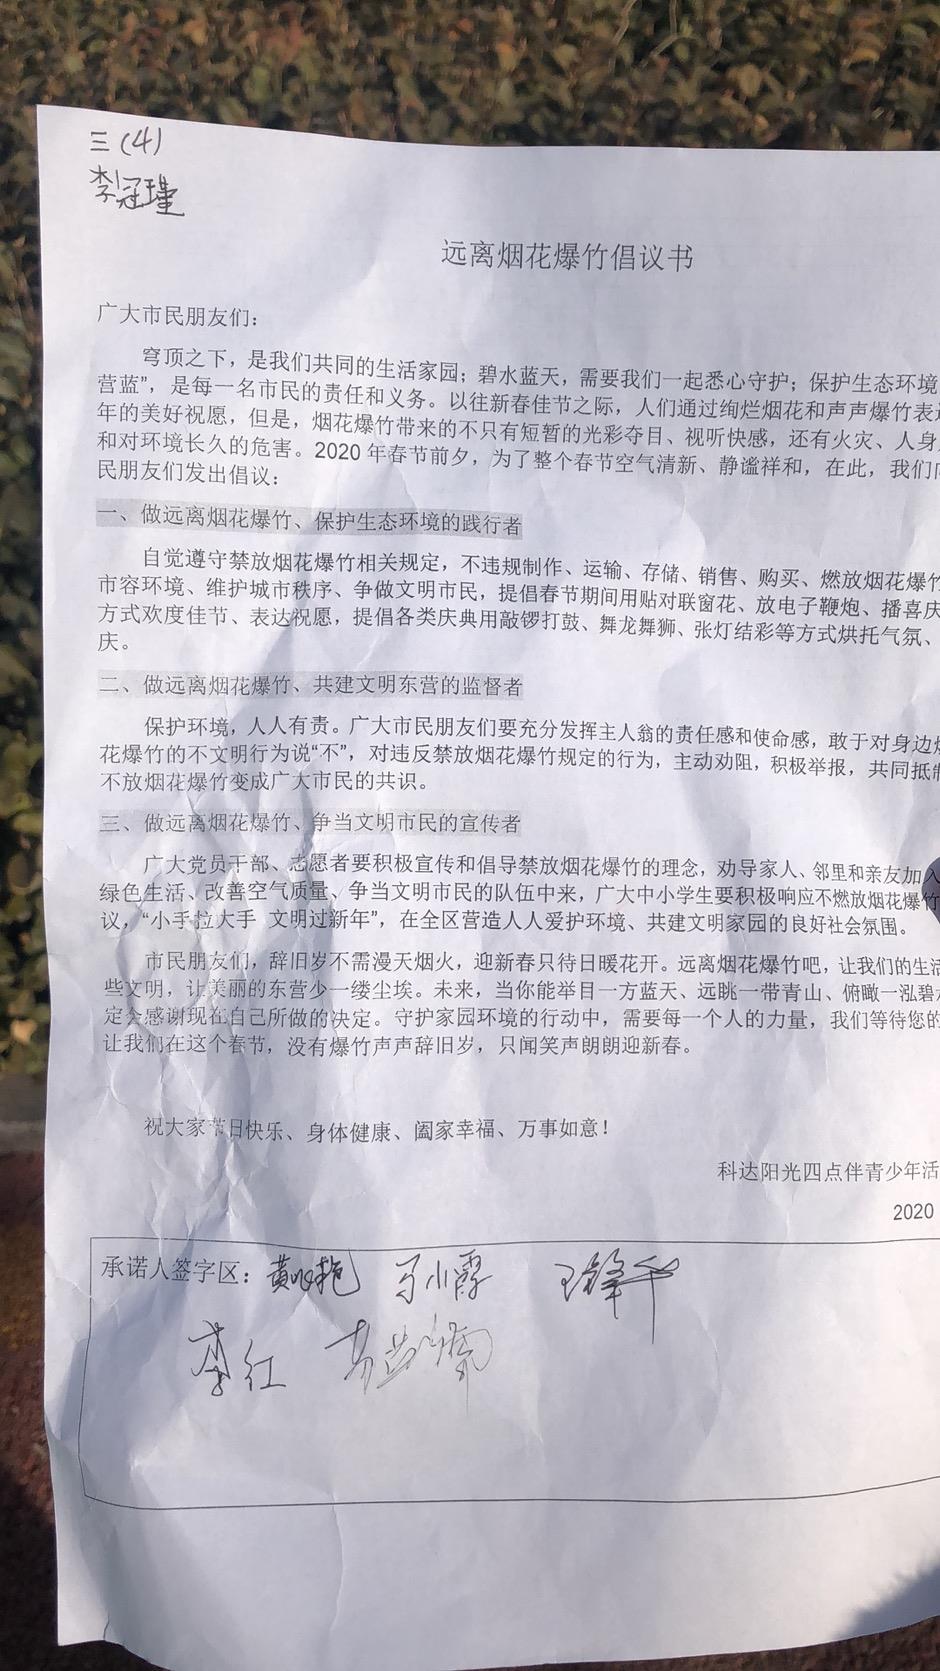 三(4)
李冠瑾
远离烟花爆竹倡议书
广大市民朋友们：
穹顶之下，是我们共同的生活家园；碧水蓝天，需要我们一起悉心守护；保护生态环境
营蓝”，是每一名市民的责任和义务。以往新春佳节之际，人们通过绚烂烟花和声声爆竹表
年的美好祝愿，但是，烟花爆竹带来的不只有短暂的光彩夺目、视听快感，还有火灾、人身
和对环境长久的危害。2020年春节前夕，为了整个春节空气清新、静谧祥和，在此，我们
民朋友们发出倡议：
一、做远离烟花爆竹、保护生态环境的践行者
自觉遵守禁放烟花爆竹相关规定，不违规制作、运输、存储、销售、购买、燃放烟花爆竹
市容环境、维护城市秩序、争做文明市民，提倡春节期间用贴对联窗花、放电子鞭炮、播喜庆
方式欢度佳节、表达祝愿，提倡各类庆典用敲锣打鼓、舞龙舞狮、张灯结彩等方式烘托气氛、
庆。
二、做远离烟花爆竹、共建文明东营的监督者
保护环境，人人有责。广大市民朋友们要充分发挥主人翁的责任感和使命感，敢于对身边
花爆竹的不文明行为说“不”，对违反禁放烟花爆竹规定的行为，主动劝阻，积极举报，共同抵
不放烟花爆竹变成广大市民的共识。
三、做远离烟花爆竹、争当文明市民的宣传者
广大党员干部、志愿者要积极宣传和倡导禁放烟花爆竹的理念，劝导家人、邻里和亲友加入
绿色生活、改善空气质量、争当文明市民的队伍中来，广大中小学生要积极响应不燃放烟花爆竹
议，“小手拉大手 文明过新年”，在全区营造人人爱护环境、共建文明家园的良好社会氛围。
市民朋友们，辞旧岁不需漫天烟火，迎新春只待日暖花开。远离烟花爆竹吧，让我们的生活
些文明，让美丽的东营少一缕尘埃。未来，当你能举目一方蓝天、远眺一带青山、俯瞰一泓碧
定会感谢现在自己所做的决定。守护家园环境的行动中，需要每一个人的力量，我们等待您的
让我们在这个春节，没有爆竹声声辞旧岁，只闻笑声朗朗迎新春。
祝大家节日快乐、身体健康、阖家幸福、万事如意！
科达阳光四点伴青少年活
2020
承诺人签字区：
李红